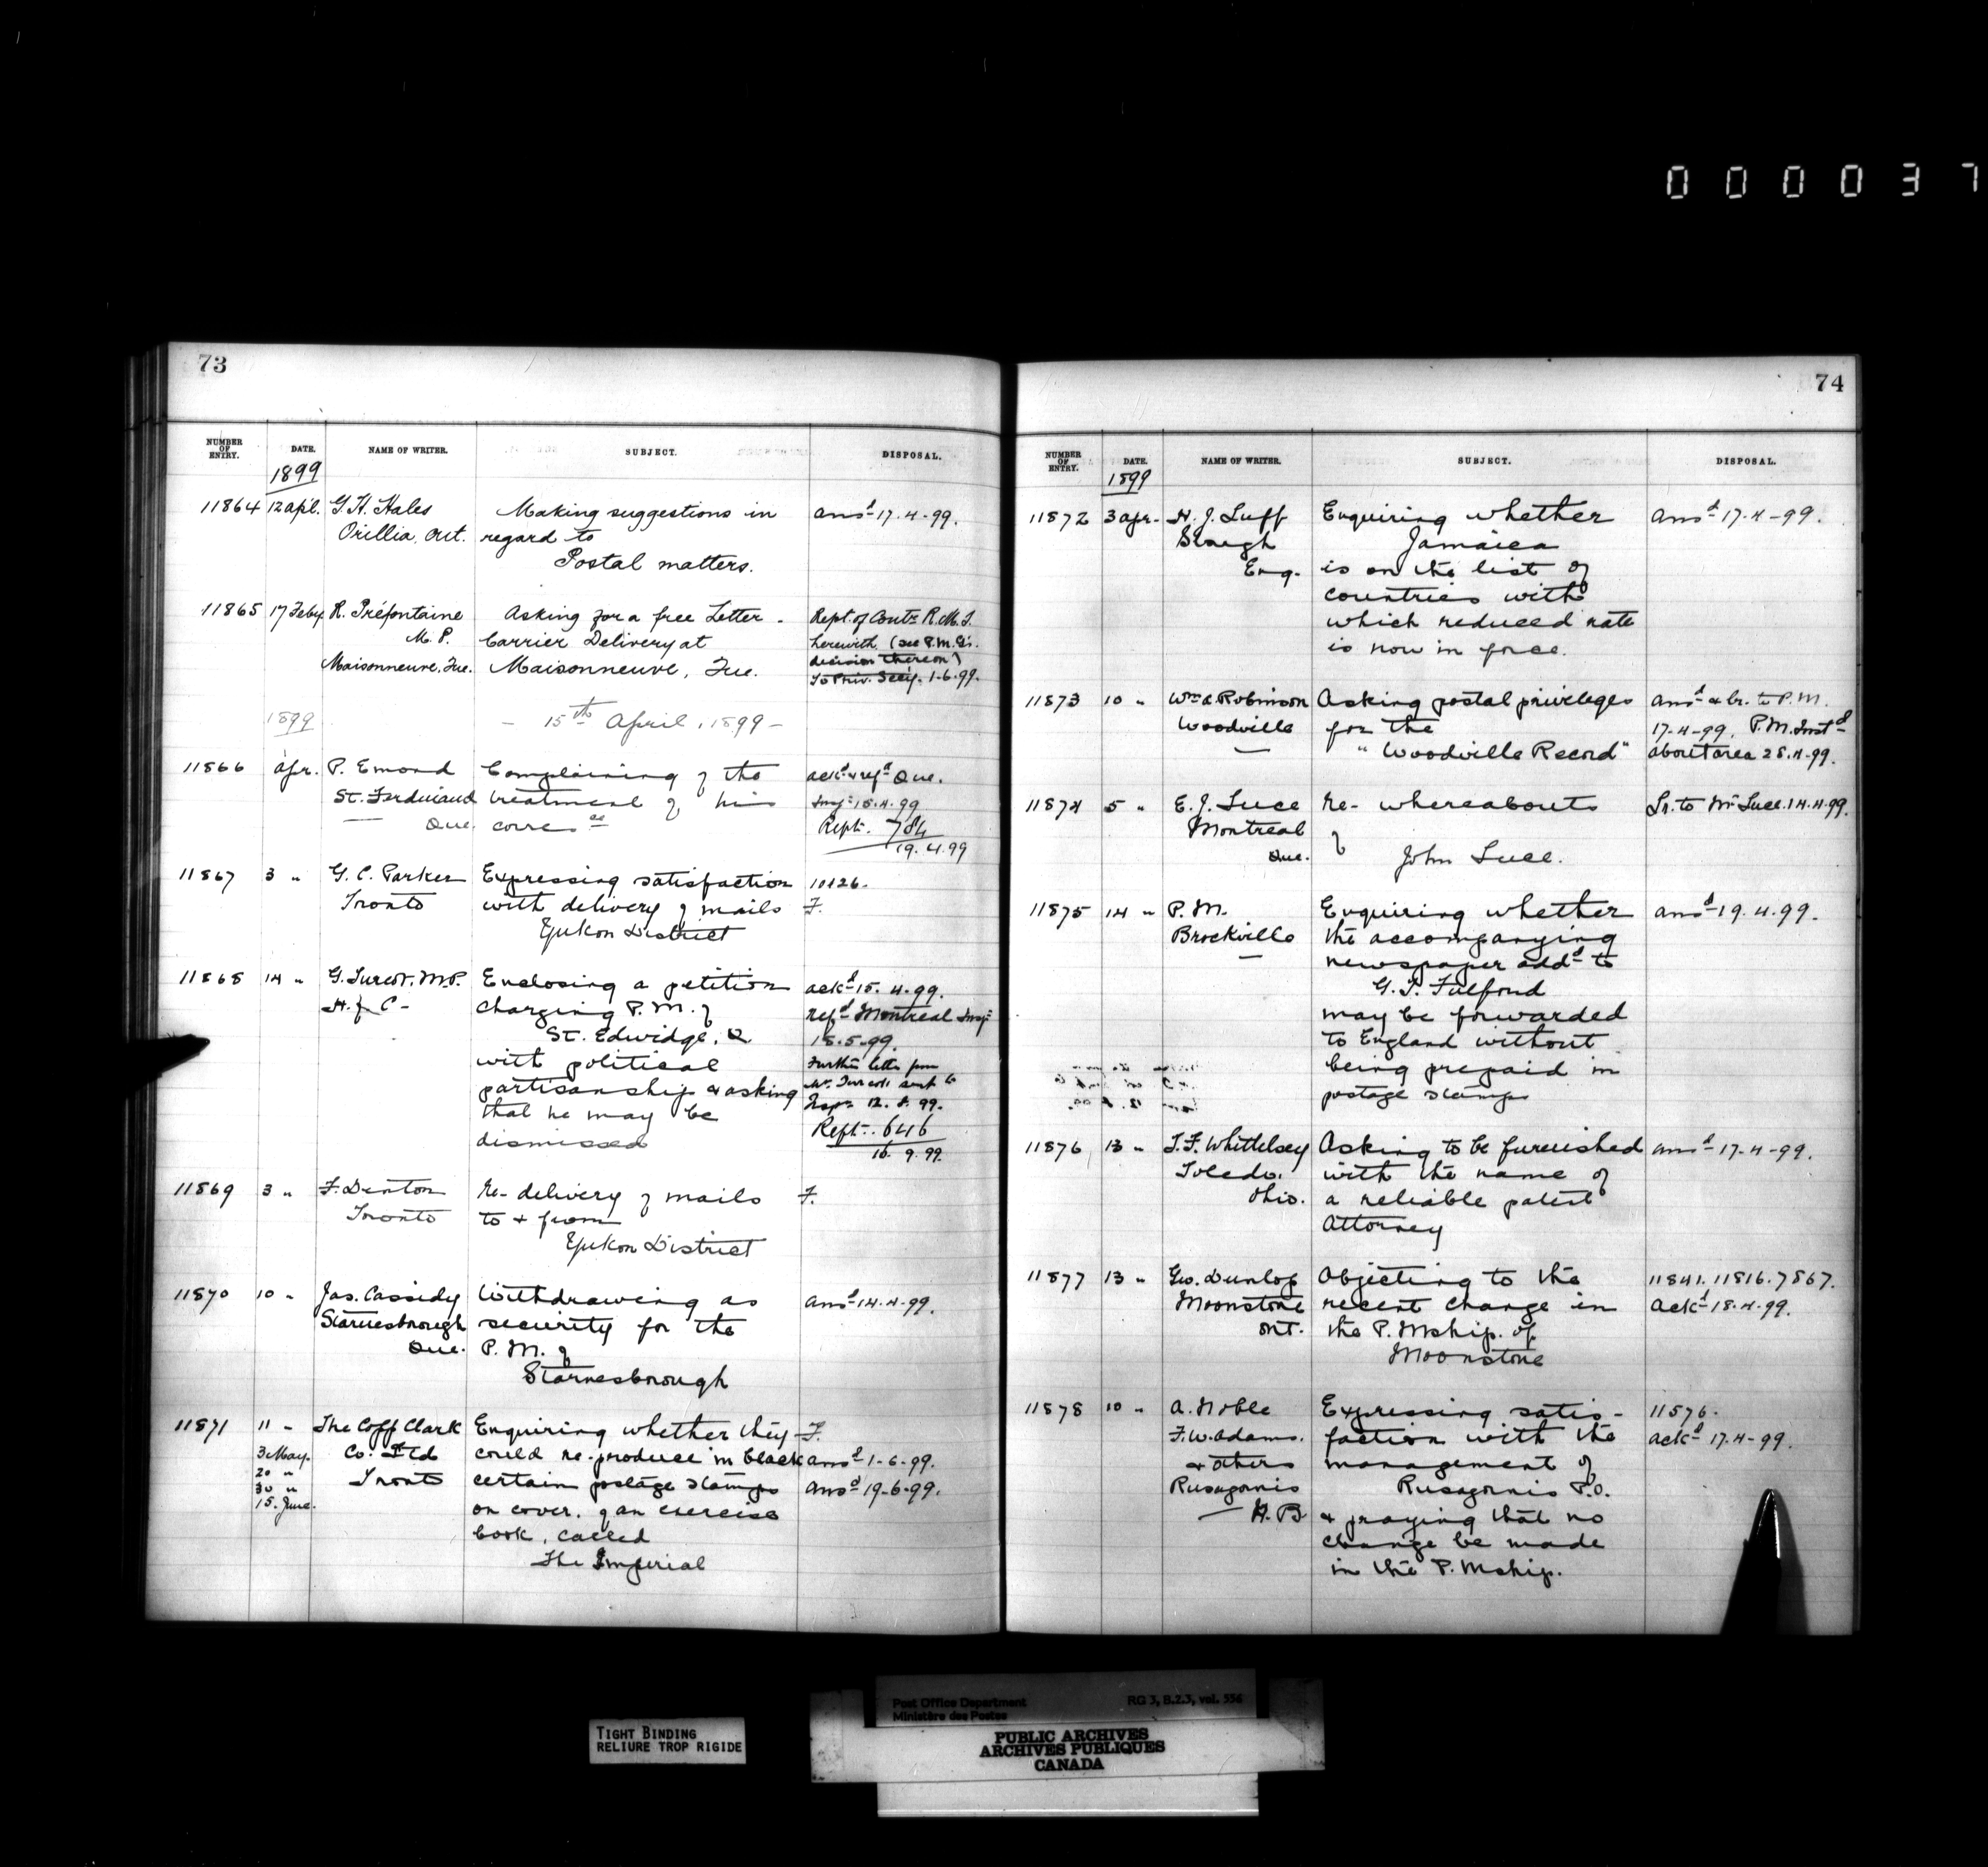 000037
73
NUMBER OF ENTRY. DATE. NAME OF WRITER. SUBJECT. DISPOSAL.
1899
11864 12 apl. G. H. Hales Making suggestions in ansd 17-4-99.
Orillia, Ont. regard to
Postal matters.
11865 17 Feby R. Préfontaine Asking for a free Letter - Rept. of Contr R.M.S.
M. P. Carrier Delivery at herewith (see P.M.G's.
Maisonneuve, Que. Maisonneuve, Que. decision thereon)
To Priv. Secy. 1-6-99.
1899 - 15th April, 1899 -
11866 apr. P. Emond Complaining of the ackd & refd Que.
St. Ferdinand treatment of his Inspr 15.4.99
Que. corresce Rept. 784
19.4.99
11867 3 " G. C. Parker Expressing satisfaction 10126.
Tronto with delivery of mails F.
Yukon District
11868 14 " G. Turcot. M.P. Enclosing a petition ackd 15.4.99.
H. of C - charging P. M. of refd Montreal Inspr
St. Edwidge, Q. 15.5.99.
with political Further letter from
partisanship & asking Mr. Turcott sent to
that he may be Inspr 12. 8. 99.
dismissed Rept. 646
16. 9. 99.
11869 3 " F. Denton Re- delivery of mails F.
Toronto to & from
Yukon District
11870 10 " Jas. Cassidy Withdrawing as ansd 14-4-99.
Starnesborough security for the
Que. P. M. of
Starnesborough
11871 11 - The Copp Clark Enquiring whether they F.
3 May. Co. Ltd could re-produce in black ansd 1-6-99.
20 " Tronto certain postage stamps ansd 19-6-99.
30 " on cover, of an exercise
15. June. book, called
The Imperial
74
NUMBER OF ENTRY. DATE. NAME OF WRITER. SUBJECT. DISPOSAL.
1899
11872 3 apr. H. J. Luff Enquiring whether ansd 17-4-99.
Slough Jamaica
Eng. is on the list of
countries with
which reduced rate
is now in force.
11873 10 " Wm A. Robinson Asking postal privileges ansd & lr. to P.M.
Woodville for the 17-4-99. P.M. Instd
"Woodville Record" about area 28.4.99.
11874 5 " E. J. Luce Re- whereabouts Lr. to Mr Luce. 14.4.99.
Montreal of
Que. John Luce.
11875 14 " P. M. Enquiring whether ansd 19.4.99.
Brockville the accompanying
newspaper addd to
G. T. Fulford
may be forwarded
to England without
being prepaid in
postage stamps
11876 13 " T. F. Whittelsey Asking to be furnished ansd 17-4-99.
Toledo. with the name of
Ohio. a reliable patent
Attorney
11877 13 " Geo. Dunlop Objecting to the 11841. 11816. 7867.
Moonstone recent change in ackd 18.4.99.
Ont. the P. Mship. of
Moonstone
11878 10 " A. Noble Expressing satis- 11576.
F. W. Adams. faction with the ackd 17-4-99.
& others management of
Rusagornis Rusagornis P.O.
N. B & praying that no
change be made
in the P. Mship.
TIGHT BINDING
RELIURE TROP RIGIDE
Post Office Department RG 3, B.2.3, vol. 556
Ministère des Postes
PUBLIC ARCHIVES
ARCHIVES PUBLIQUES
CANADA